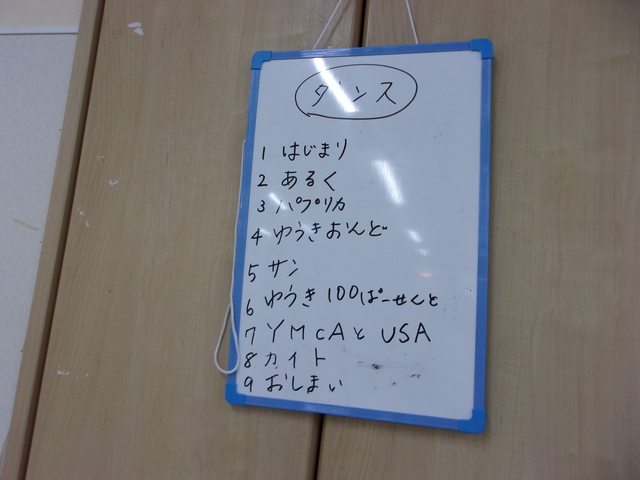 ダンス
1 はじまり
2 あるく
3 パプリカ
4 ゆうきおんど
5 サン
6 ゆうき100ぱーせんと
7 YMCAと USA
8 カイト
9 おしまい